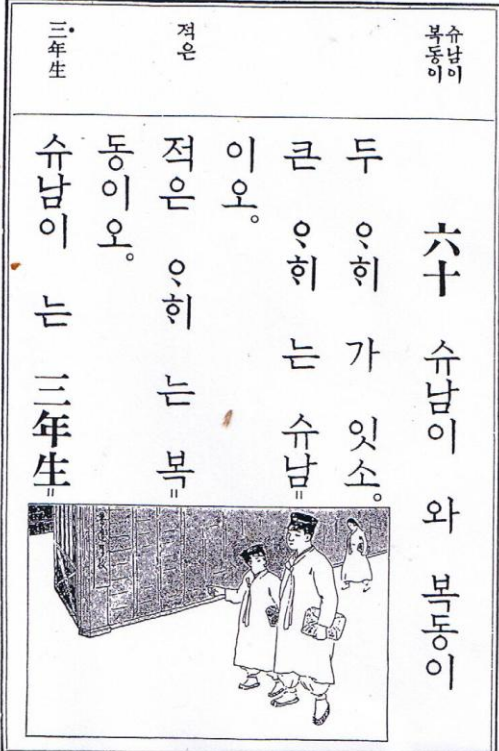 슈남이
복동이
적은
三年生
六十 슈남이 와 복동이
두 ᄋᆞᄒᆡ 가 잇소。
큰 ᄋᆞᄒᆡ 는 슈남=
이오。
적은 ᄋᆞᄒᆡ 는 복=
동이오。
슈남이 는 三年生=